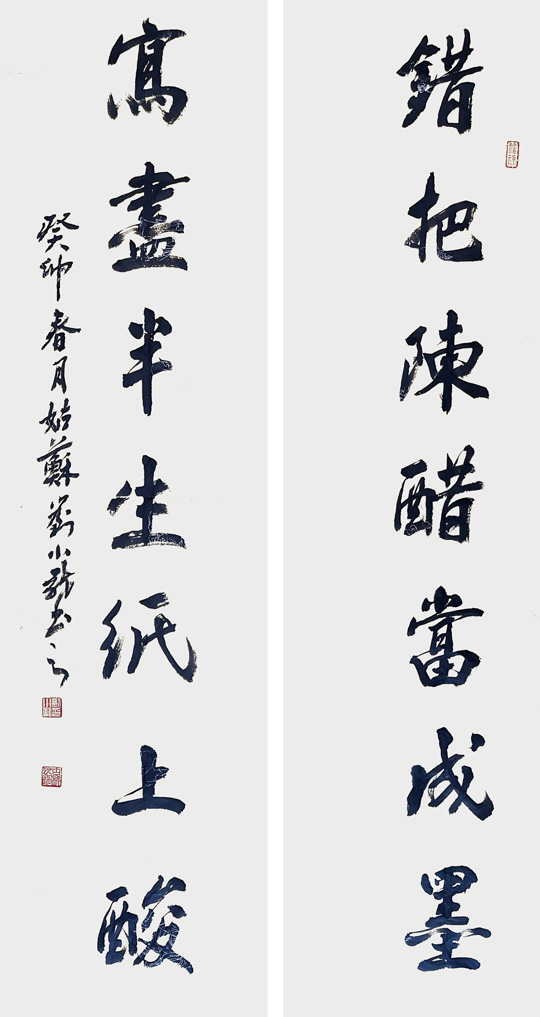 錯把陳醋當成墨
寫盡半生紙上酸
癸卯春月姑蘇劉小龍書之